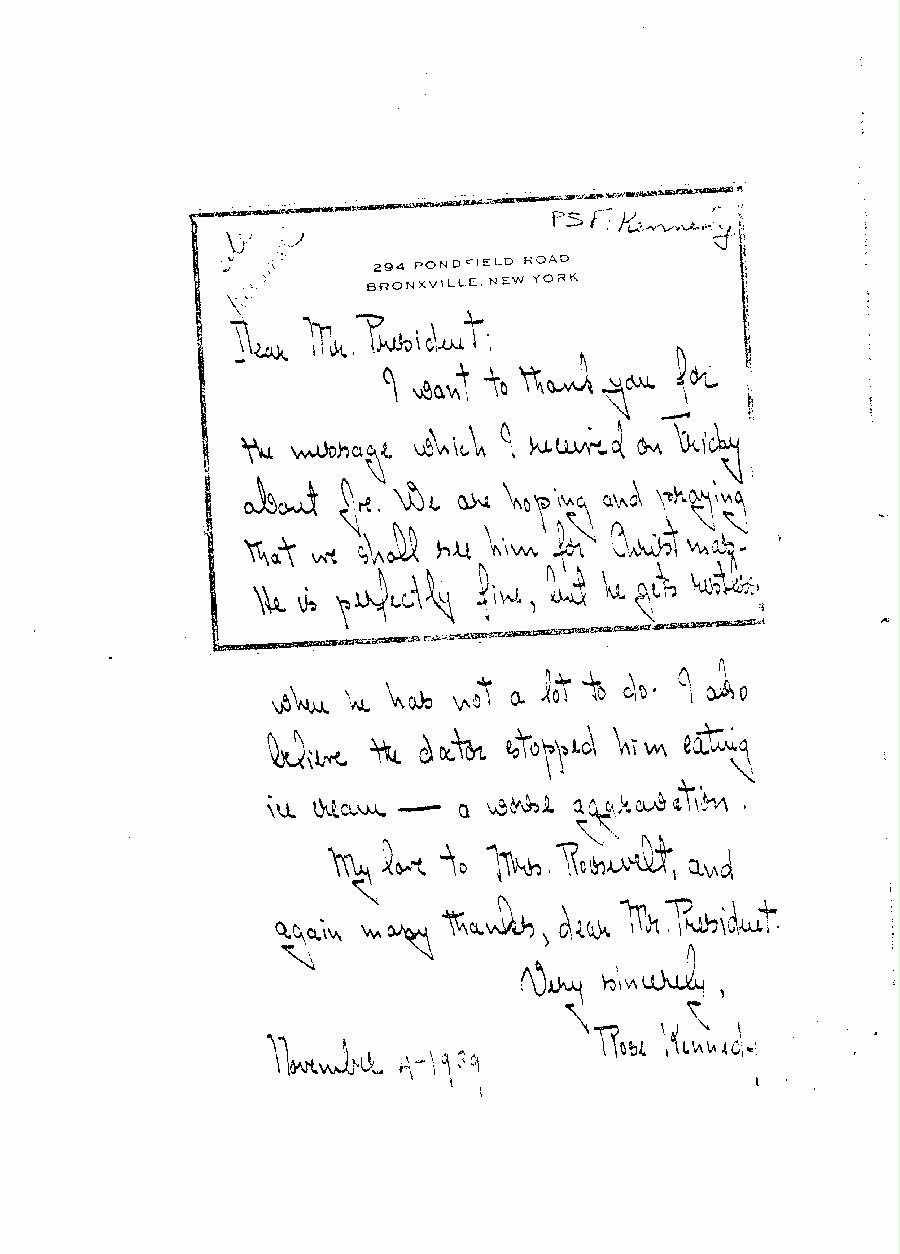 PSF: Kennedy
294 PONDFIELD ROAD
BRONXVILLE, NEW YORK
Dear Mr. President:
I want to thank you for
the message which I received on Friday
about Joe. We are hoping and praying
that we shall see him for Christmas-
He is perfectly fine, but he gets restless
when he has not a lot to do. I also
believe the doctor stopped him eating
ice cream — a worse aggravation.
My love to Mrs. Roosevelt, and
again many thanks, dear Mr. President.
Very sincerely,
Rose Kennedy
November 4-1939